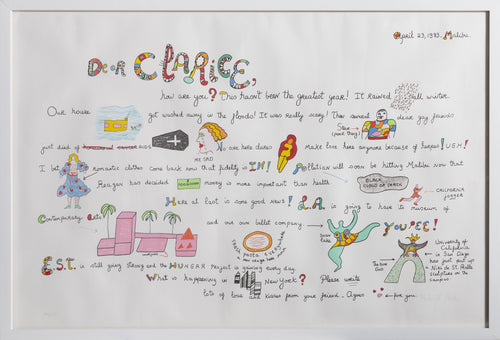 April 23, 1983. Malibu.
Dear CLARICE,
how are you? This hasn't been the greatest year! It Rained all winter
Our house got washed away in the floods! It was really scary! Then several dear gay friends
Steve
(poor thing)
just died of cancer AIDS No one here dares Make love here anymore because of herpes! UGH!
ME SAD
I bet romantic clothes come back now that fidelity is IN! Pollution will soon be hitting Malibu now that
Reagan has decided money is more important than health
BLACK
CLOUD OF DEATH
CALIFORNIA
jogger
Here at last is some good news! L.A. is going to have its museum of
Contemporary Art and our own ballet company YOUPEE!
Swan
Lake
The Sun
God
University of
California
in San Diego
has just put up
Niki de St. Phalle
sculpture on the
campus
E.S.T. is still going strong and the HUNGER Project is growing every day
What is happening in New York? Please write
lots of love kisses from your friend. Agnes for you.